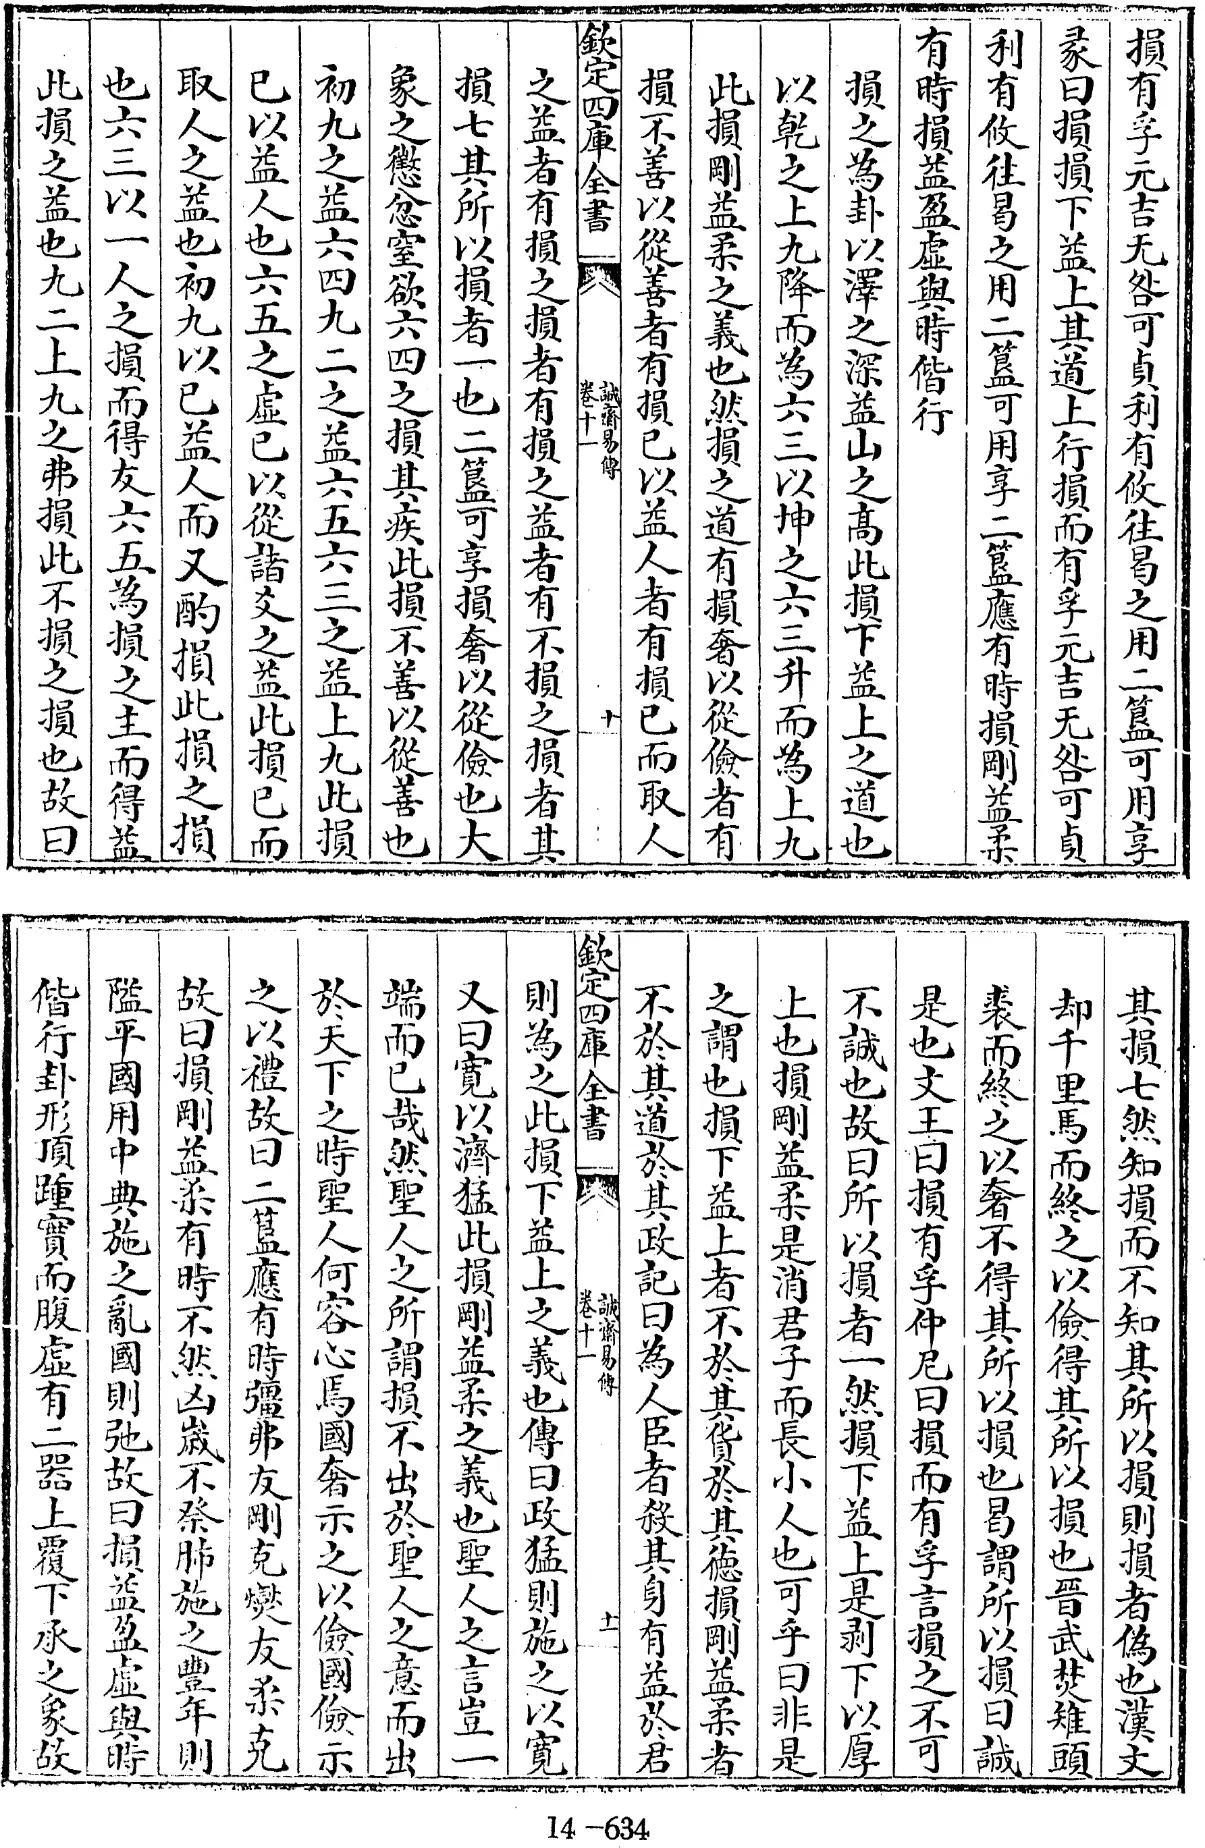 損有孚元吉无咎可貞利有攸往曷之用二簋可用享
彖曰損損下益上其道上行損而有孚元吉无咎可貞
利有攸往曷之用二簋可用享二簋應有時損剛益柔
有時損益盈虛與時偕行
損之為卦以澤之深益山之髙此損下益上之道也
以乾之上九降而為六三以坤之六三升而為上九
此損剛益柔之義也然損之道有損奢以從儉者有
損不善以從善者有損已以益人者有損已而取人
欽定四庫全書
誠齋易傳
卷十一
十
之益者有損之損者有損之益者有不損之損者其
損七其所以損者一也二簋可享損奢以從儉也大
象之懲忿窒欲六四之損其疾此損不善以從善也
初九之益六四九二之益六五六三之益上九此損
已以益人也六五之虛已以從諸爻之益此損已而
取人之益也初九以已益人而又酌損此損之損
也六三以一人之損而得友六五為損之主而得益
此損之益也九二上九之弗損此不損之損也故曰
其損七然知損而不知其所以損則損者偽也漢文
却千里馬而終之以儉得其所以損也晉武焚雉頭
裘而終之以奢不得其所以損也曷謂所以損曰誠
是也文王曰損有孚仲尼曰損而有孚言損之不可
不誠也故曰所以損者一然損下益上是剥下以厚
上也損剛益柔是消君子而長小人也可乎曰非是
之謂也損下益上者不於其貨於其德損剛益柔者
不於其道於其政記曰為人臣者殺其身有益於君
欽定四庫全書
誠齋易傳
卷十一
十一
則為之此損下益上之義也傳曰政猛則施之以寛
又曰寛以濟猛此損剛益柔之義也聖人之言豈一
端而已哉然聖人之所謂損不出於聖人之意而出
於天下之時聖人何容心焉國奢示之以儉國儉示
之以禮故曰二簋應有時彊弗友剛克燮友柔克
故曰損剛益柔有時不然凶嵗不祭肺施之豐年則
隘平國用中典施之亂國則弛故曰損益盈虛與時
偕行卦形頂踵實而腹虛有二器上覆下承之象故
14-634